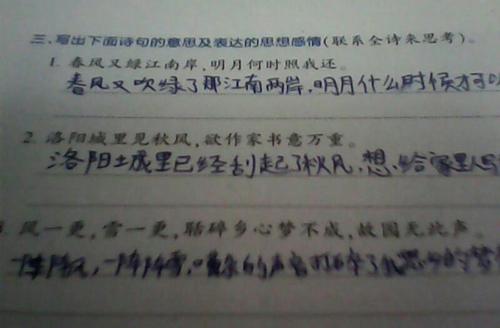 三、写出下面诗句的意思及表达的思想感情(联系全诗来思考)。
1. 春风又绿江南岸,明月何时照我还。
春风又吹绿了那江南两岸,明月什么时候才可以
2. 洛阳城里见秋风,欲作家书意万重。
洛阳城里已经刮起了秋风,想给家里人写
风一更,雪一更,聒碎乡心梦不成,故园无此声。
一阵阵风,一阵阵雪,嘈杂的声音打碎了我思乡的梦